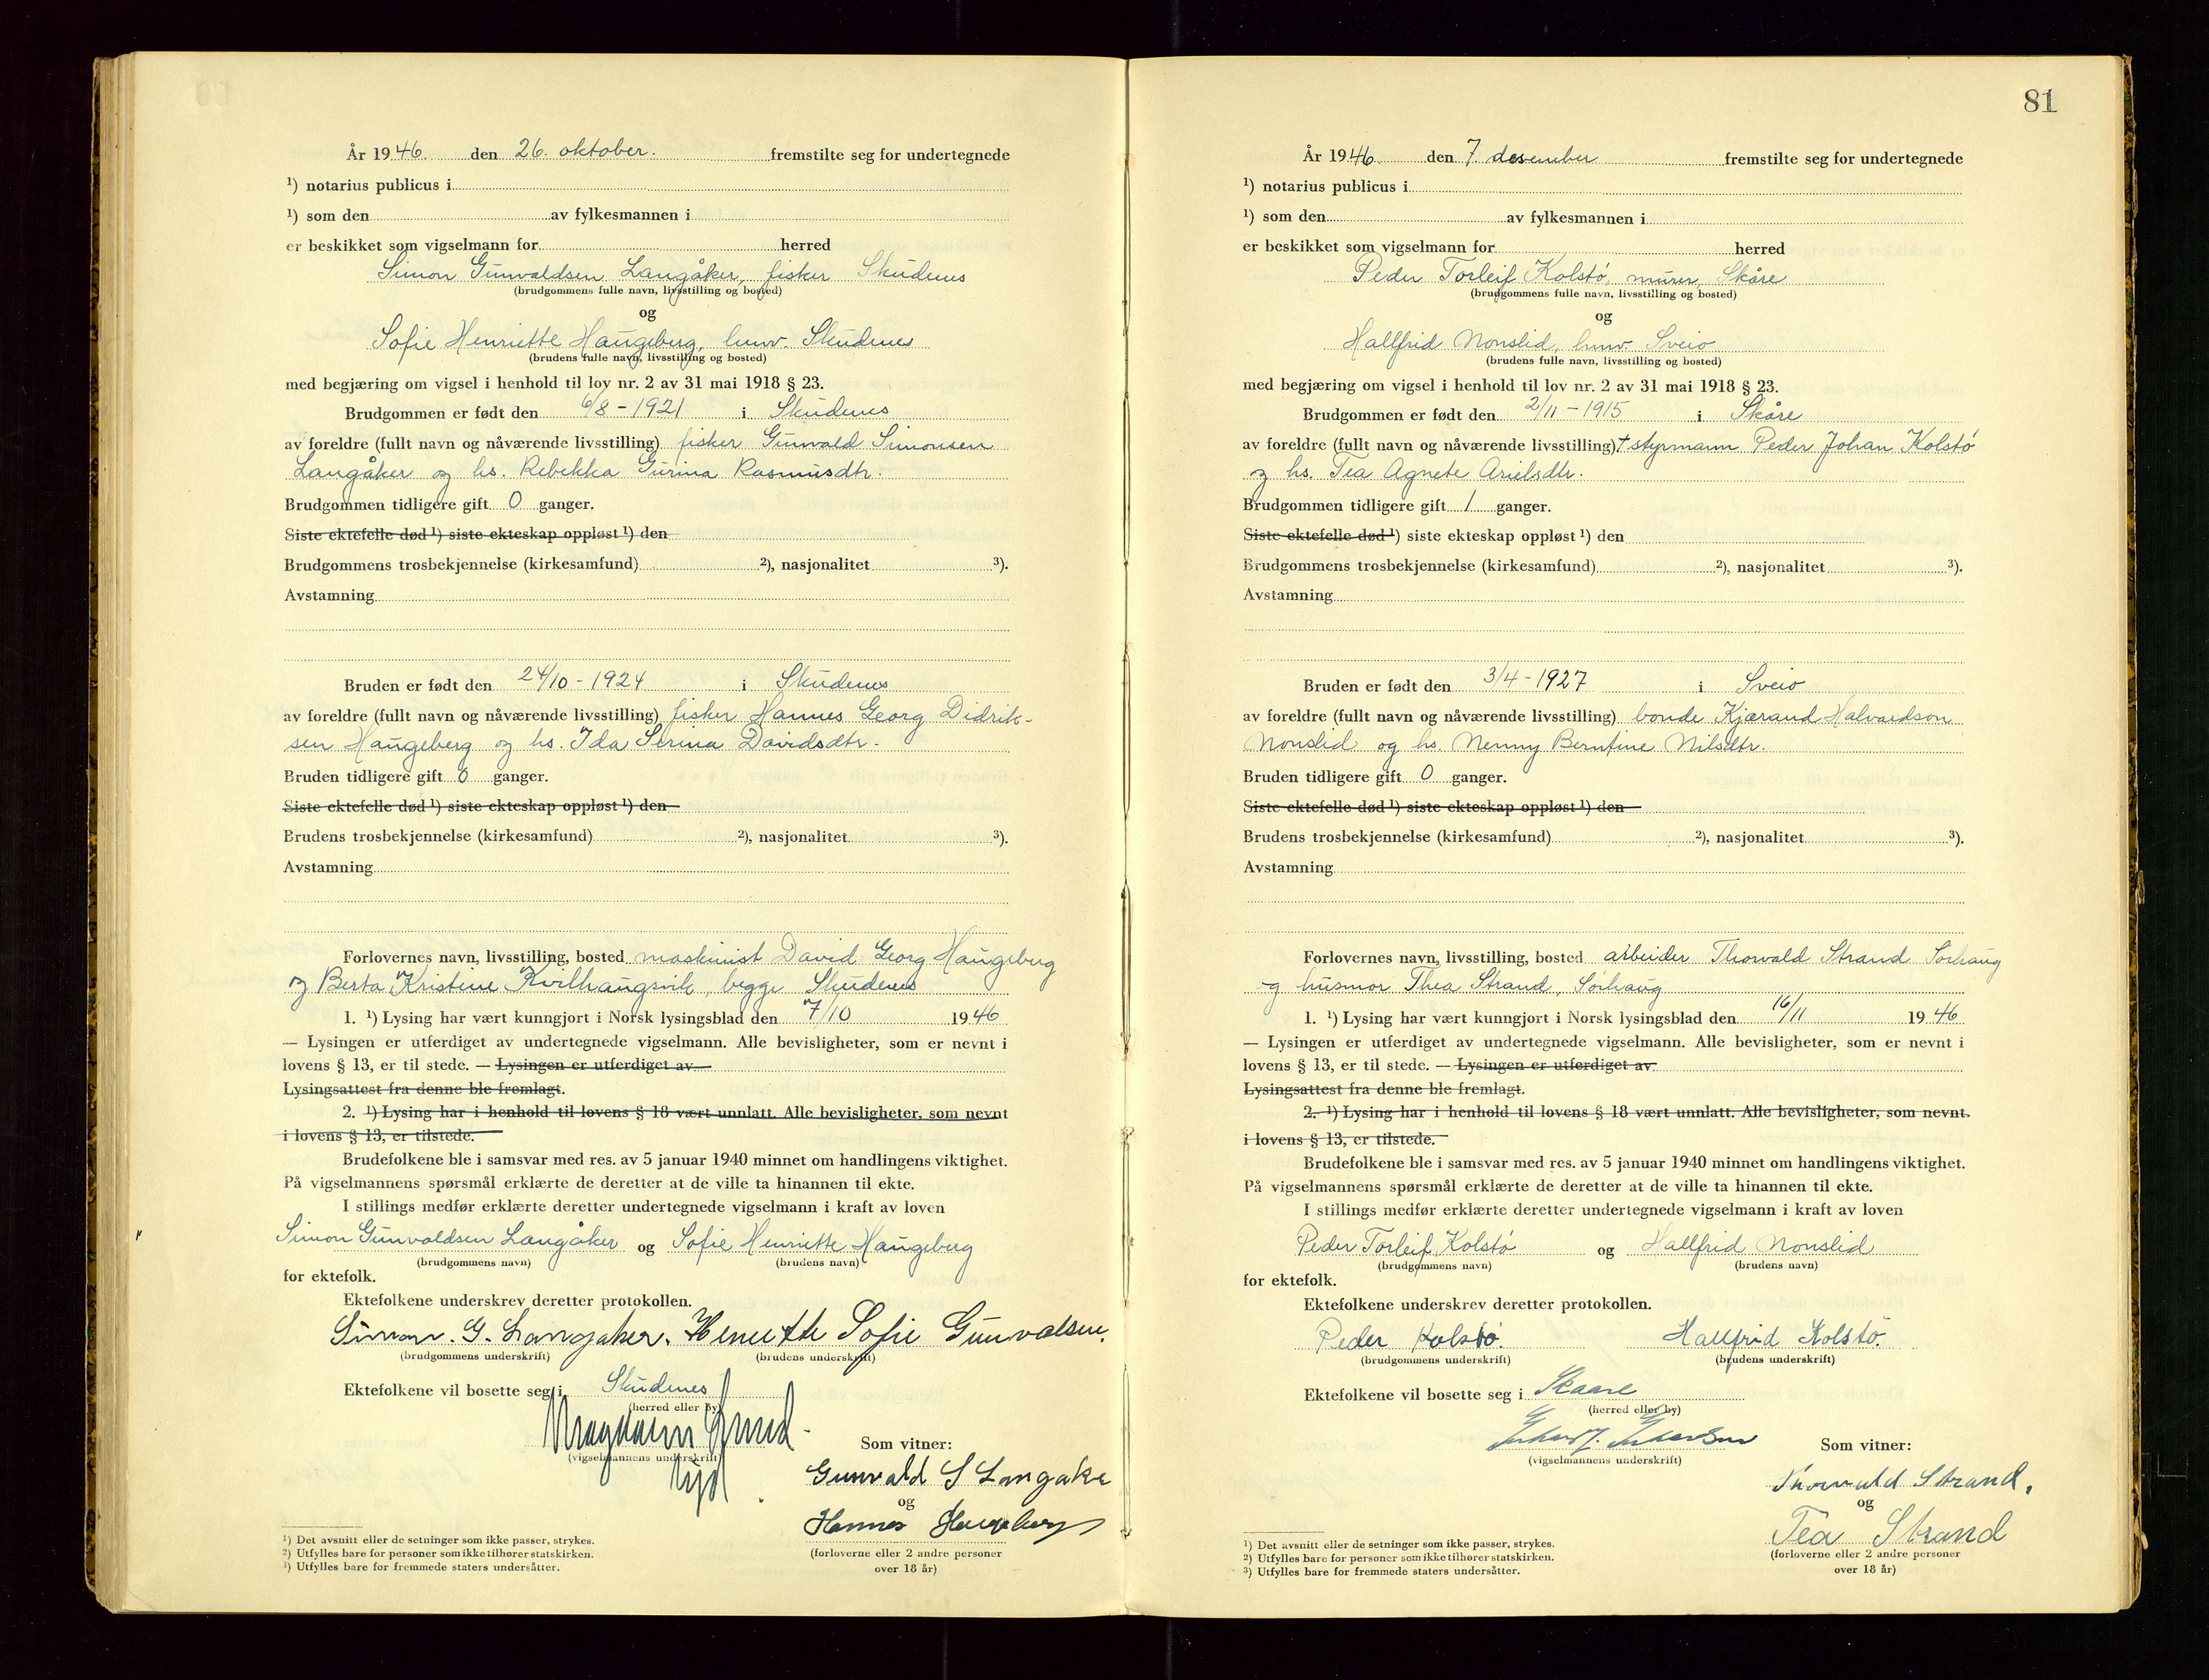 År 1946 den 26. oktober. fremstilte seg for undertegnede
¹) notarius publicus i
¹) som den av fylkesmannen i
er beskikket som vigselmann for herred
Simon Gunvaldsen Langåker, fisker Skudenes
(brudgommens fulle navn, livsstilling og bosted)
og
Sofie Henriette Haugeberg, hmv. Skudenes
(brudens fulle navn, livsstilling og bosted)
med begjæring om vigsel i henhold til lov nr. 2 av 31 mai 1918 § 23.
Brudgommen er født den 6/8 - 1921 i Skudenes
av foreldre (fullt navn og nåværende livsstilling) fisker Gunvald Simonsen
Langåker og hs. Rebekka Gurina Rasmusdtr.
Brudgommen tidligere gift 0 ganger.
Siste ektefelle død ¹) siste ekteskap oppløst ¹) den
Brudgommens trosbekjennelse (kirkesamfund) ²), nasjonalitet ³).
Avstamning
Bruden er født den 24/10 - 1924 i Skudenes
av foreldre (fullt navn og nåværende livsstilling) fisker Hannes Georg Didrik-
sen Haugeberg og hs. Ida Serina Davidsdtr.
Bruden tidligere gift 0 ganger.
Siste ektefelle død ¹) siste ekteskap oppløst ¹) den
Brudens trosbekjennelse (kirkesamfund) ²), nasjonalitet ³).
Avstamning
Forlovernes navn, livsstilling, bosted maskinist David Georg Haugeberg
og Berta Kristine Kvilhaugsvik, begge Skudenes
1. ¹) Lysing har vært kunngjort i Norsk lysingsblad den 7/10 1946
— Lysingen er utferdiget av undertegnede vigselmann. Alle bevisligheter, som er nevnt i
lovens § 13, er til stede. — Lysingen er utferdiget av
Lysingsattest fra denne ble fremlagt.
2. ¹) Lysing har i henhold til lovens § 18 vært unnlatt. Alle bevisligheter, som nevnt
i lovens § 13, er tilstede.
Brudefolkene ble i samsvar med res. av 5 januar 1940 minnet om handlingens viktighet.
På vigselmannens spørsmål erklærte de deretter at de ville ta hinannen til ekte.
I stillings medfør erklærte deretter undertegnede vigselmann i kraft av loven
Simon Gunvaldsen Langåker og Sofie Henriette Haugeberg
(brudgommens navn) (brudens navn)
for ektefolk.
Ektefolkene underskrev deretter protokollen.
Simon. G. Langaker. Henriette Sofie Gunvalsen.
(brudgommens underskrift) (brudens underskrift)
Ektefolkene vil bosette seg i Skudenes
(herred eller by)
(vigselmannens underskrift)
Som vitner:
Gunvald S Langake
og
Hannes Haugeberg
(forloverne eller 2 andre personer
over 18 år)
¹) Det avsnitt eller de setninger som ikke passer, strykes.
²) Utfylles bare for personer som ikke tilhører statskirken.
³) Utfylles bare for fremmede staters undersåtter.
81
År 1946 den 7 desember fremstilte seg for undertegnede
¹) notarius publicus i
¹) som den av fylkesmannen i
er beskikket som vigselmann for herred
Peder Torleif Kolstø, murer, Skåre
(brudgommens fulle navn, livsstilling og bosted)
og
Hallfrid Nonslid, hmv. Sveio
(brudens fulle navn, livsstilling og bosted)
med begjæring om vigsel i henhold til lov nr. 2 av 31 mai 1918 § 23.
Brudgommen er født den 2/11 - 1915 i Skåre
av foreldre (fullt navn og nåværende livsstilling) † styrmann Peder Johan Kolstø
og hs. Tea Agnete Arielsdtr.
Brudgommen tidligere gift 1 ganger.
Siste ektefelle død ¹) siste ekteskap oppløst ¹) den
Brudgommens trosbekjennelse (kirkesamfund) ²), nasjonalitet ³).
Avstamning
Bruden er født den 3/4 - 1927 i Sveio
av foreldre (fullt navn og nåværende livsstilling) bonde Kjærand Halvardson
Nonslid og hs. Nenny Berntine Nilsdtr.
Bruden tidligere gift 0 ganger.
Siste ektefelle død ¹) siste ekteskap oppløst ¹) den
Brudens trosbekjennelse (kirkesamfund) ²), nasjonalitet ³).
Avstamning
Forlovernes navn, livsstilling, bosted arbeider Thorvald Strand Sørhaug
og husmor Thea Strand, Sørhaug
1. ¹) Lysing har vært kunngjort i Norsk lysingsblad den 16/11 1946
— Lysingen er utferdiget av undertegnede vigselmann. Alle bevisligheter, som er nevnt i
lovens § 13, er til stede. — Lysingen er utferdiget av
Lysingsattest fra denne ble fremlagt.
2. ¹) Lysing har i henhold til lovens § 18 vært unnlatt. Alle bevisligheter, som nevnt
i lovens § 13, er tilstede.
Brudefolkene ble i samsvar med res. av 5 januar 1940 minnet om handlingens viktighet.
På vigselmannens spørsmål erklærte de deretter at de ville ta hinannen til ekte.
I stillings medfør erklærte deretter undertegnede vigselmann i kraft av loven
Peder Torleif Kolstø og Hallfrid Nonslid
(brudgommens navn) (brudens navn)
for ektefolk.
Ektefolkene underskrev deretter protokollen.
Peder Kolstø. Hallfrid Kolstø.
(brudgommens underskrift) (brudens underskrift)
Ektefolkene vil bosette seg i Skaare
(herred eller by)
(vigselmannens underskrift)
Som vitner:
Thorvald Strand.
og
Tea Strand
(forloverne eller 2 andre personer
over 18 år)
¹) Det avsnitt eller de setninger som ikke passer, strykes.
²) Utfylles bare for personer som ikke tilhører statskirken.
³) Utfylles bare for fremmede staters undersåtter.